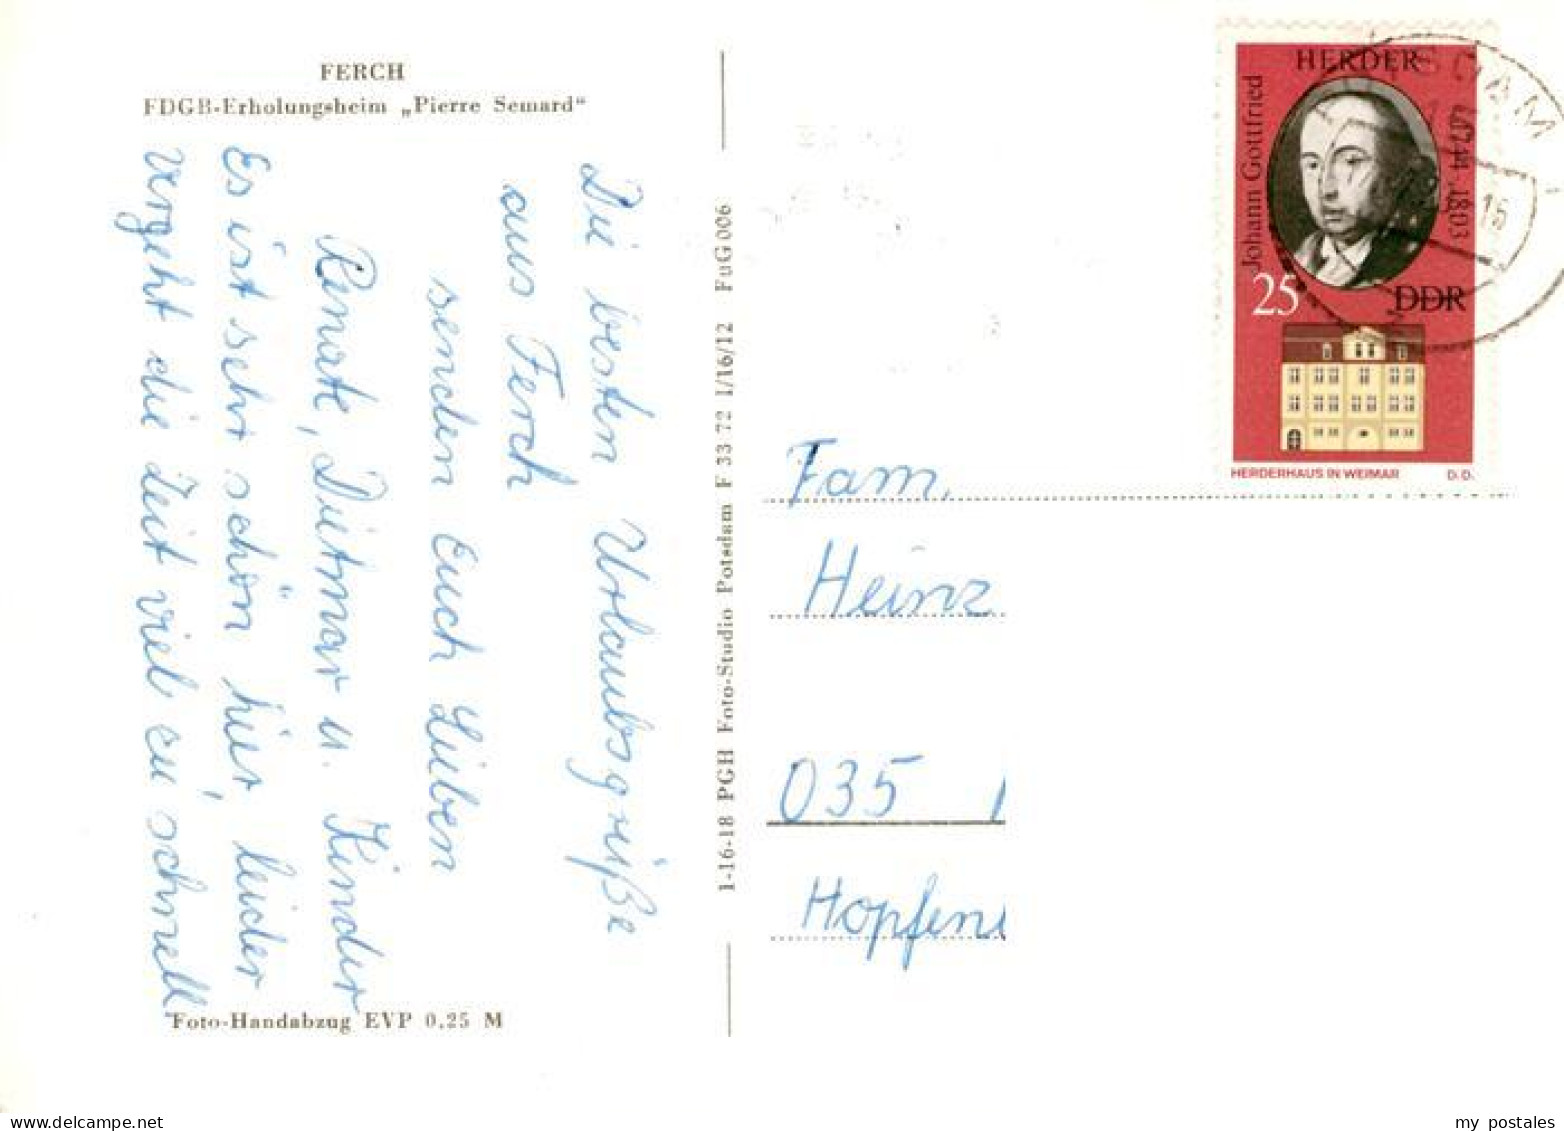 FERCH
FDGB-Erholungsheim „Pierre Semard“
Die besten Urlaubsgrüße
aus Ferch
senden Euch Lieben
Renate, Dietmar u. Kinder
Es ist sehr schön hier, leider
vergeht die Zeit viel zu schnell.
Foto-Handabzug EVP 0,25 M
1-16-18 PGH Foto-Studio Potsdam F 33 72 1/16/12 FuG 006
Johann Gottfried
HERDER
25
DDR
HERDERHAUS IN WEIMAR D. D.
Fam.
Heinz
035
Hopfen
my postales